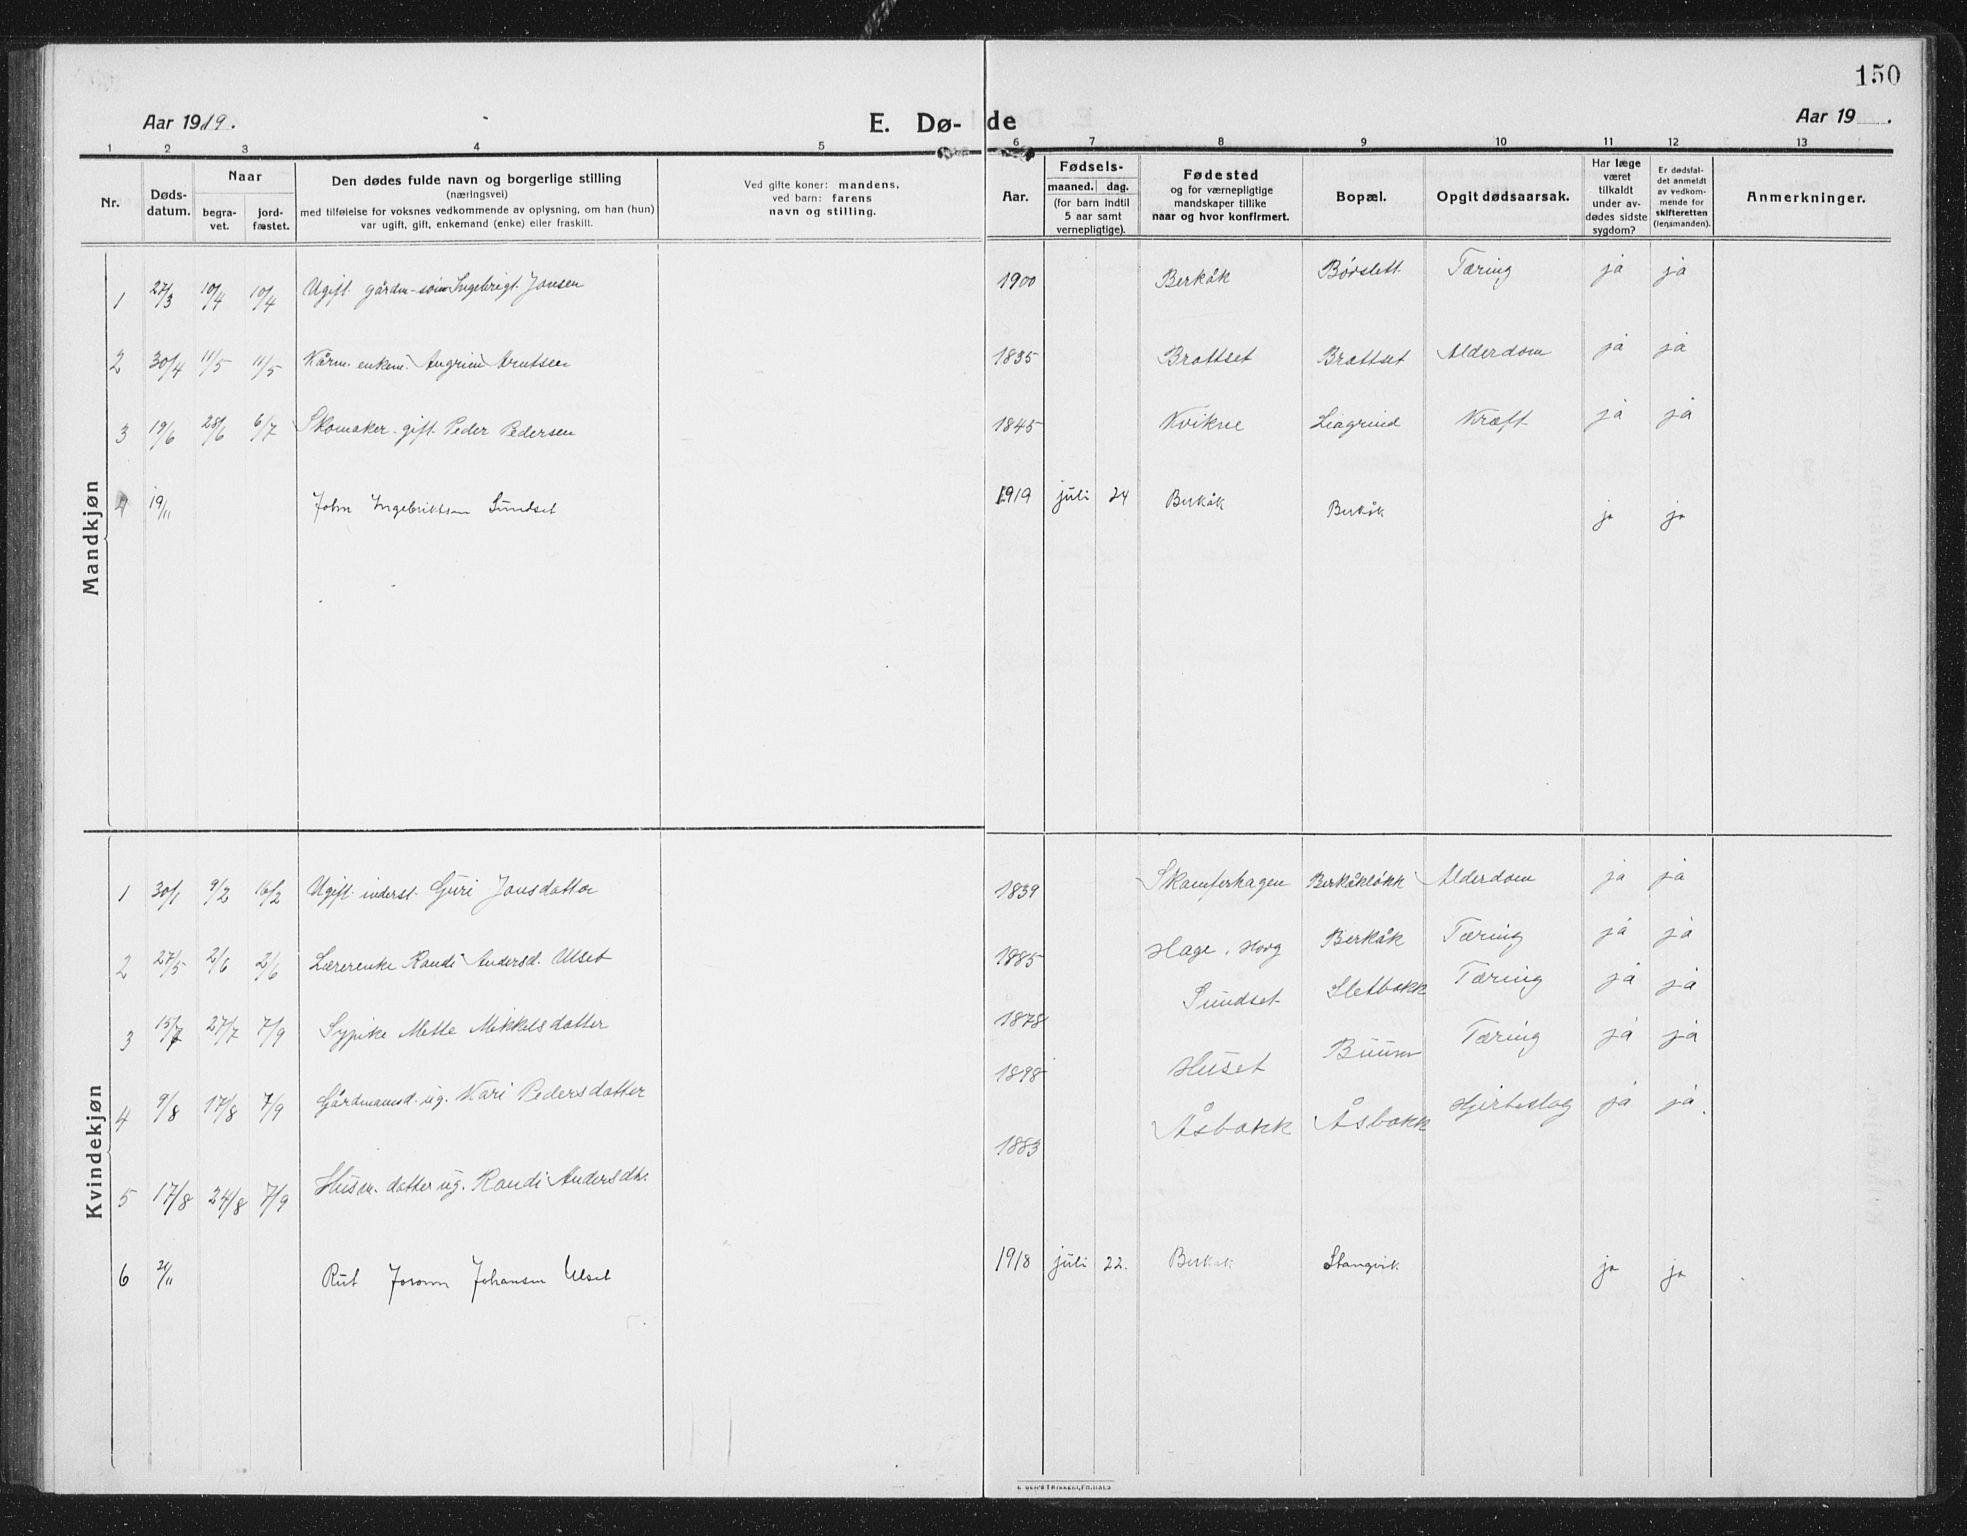 150
Aar 1919.
E. Dø-
de
Aar 19 .
1 2 3 4 5 6 7 8 9 10 11 12 13
Nr.
Døds-
datum.
Naar
begra-
vet.
jord-
fæstet.
Den dødes fulde navn og borgerlige stilling
(næringsvei)
med tilføielse for voksnes vedkommende av oplysning, om han (hun)
var ugift, gift, enkemand (enke) eller fraskilt.
Ved gifte koner: mandens,
ved barn: farens
navn og stilling.
Aar.
Fødsels-
maaned. dag.
(for barn indtil
5 aar samt
vernepligtige).
Fødested
og for værnepligtige
mandskaper tillike
naar og hvor konfirmert.
Bopæl.
Opgit dødsaarsak.
Har læge
været
tilkaldt
under av-
dødes sidste
sygdom?
Er dødsfal-
det anmeldt
av vedkom-
mende for
skifteretten
(lensmanden).
Anmerkninger.
Mandkjøn
1 27/3 10/4 10/4 Ugift gårdm-søn Ingebrigt Jonsen 1900 Berkåk Børslett Tæring ja ja
2 30/4 11/5 11/5 Kårm. enkem. Angrim Arntsen 1835 Brattset Brattset Alderdom ja ja
3 19/6 28/6 6/7 Skomaker gift Peder Pedersen 1845 Kvikne Liagrind Kræft ja ja
4 19/11 John Ingebriktsen Sundset 1919 juli 24 Berkåk Berkåk ja ja
Kvindekjøn
1 30/1 9/2 16/2 Ugift inderst Guri Jonsdatter 1839 Skamferhagen Berkåkløkk Alderdom ja ja
2 27/5 2/6 2/6 Lærerenke Randi Andersd. Ulset 1885 Hage, Horg Berkåk Tæring ja ja
3 15/7 27/7 7/9 Sypike Mette Mikkelsdatter 1878 Sundset Sletbakk Tæring ja ja
4 9/8 17/8 7/9 Gårdmansd. ug. Kari Pedersdatter 1898 Huset Buum Tæring ja ja
5 17/8 24/8 7/9 Husm. datter ug. Randi Andersdtr. 1883 Åsbakk Åsbakk Hjerteslag ja ja
6 21/11 Rut Jorunn Johansen Ulset 1918 juli 22. Berkåk Stangvik ja ja